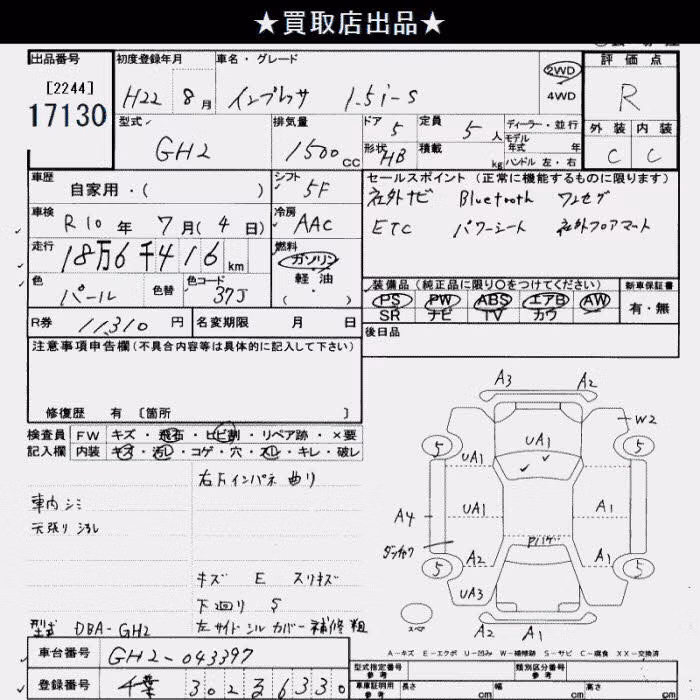 ★買取店出品★
出品番号
[2244]
17130
初度登録年月
H22 8月
車名・グレード
インプレッサ 1.5i-S
2WD
4WD
評価点
R
外装 内装
C C
型式
GH2
排気量
1500cc
ドア 5
定員 5人
形状 HB
積載 kg
ディーラー・並行
モデル年式 年
ハンドル 左・右
車歴
自家用・( )
シフト
5F
車検 R10年 7月(4日)
冷房 AAC
走行 18万6千416km
燃料
ガソリン
軽油
( )
色
パール
色替
色コード
37J
R券 11,310円
名変期限 月 日
セールスポイント (正常に機能するものに限ります)
社外ナビ Bluetooth ワンセグ
ETC パワーシート 社外フロアマット
装備品 (純正品に限り〇をつけてください)
PS PW ABS エアB AW
SR ナビ TV カワ
新車保証書
有・無
後日品
注意事項申告欄(不具合内容等は具体的に記入して下さい)
修復歴 有 [箇所 ]
検査員記入欄
FW キズ・飛石・ヒビ割・リペア跡・×要
内装 キズ・汚レ・コゲ・穴・スレ・キレ・破レ
右Fインパネ曲り
車内シミ
天張り汚れ
キズ E スリキズ
下回りS
型式 DBA-GH2
左サイドシルカバー補修粗
A3 A2
W2
5 5
UA1
UA1
A4 UA1 A1
A2 A1
5 5
UA3
スペア
A2 A1
A-キズ E-エクボ U-凹み W-補修跡 S-サビ C-腐食 XX-交換済
車台番号 GH2-043397
登録番号 千葉 302 る 6330
型式指定番号 参考
類別区分番号 参考
車庫証明用 参考 長さ cm 幅 cm 高さ cm